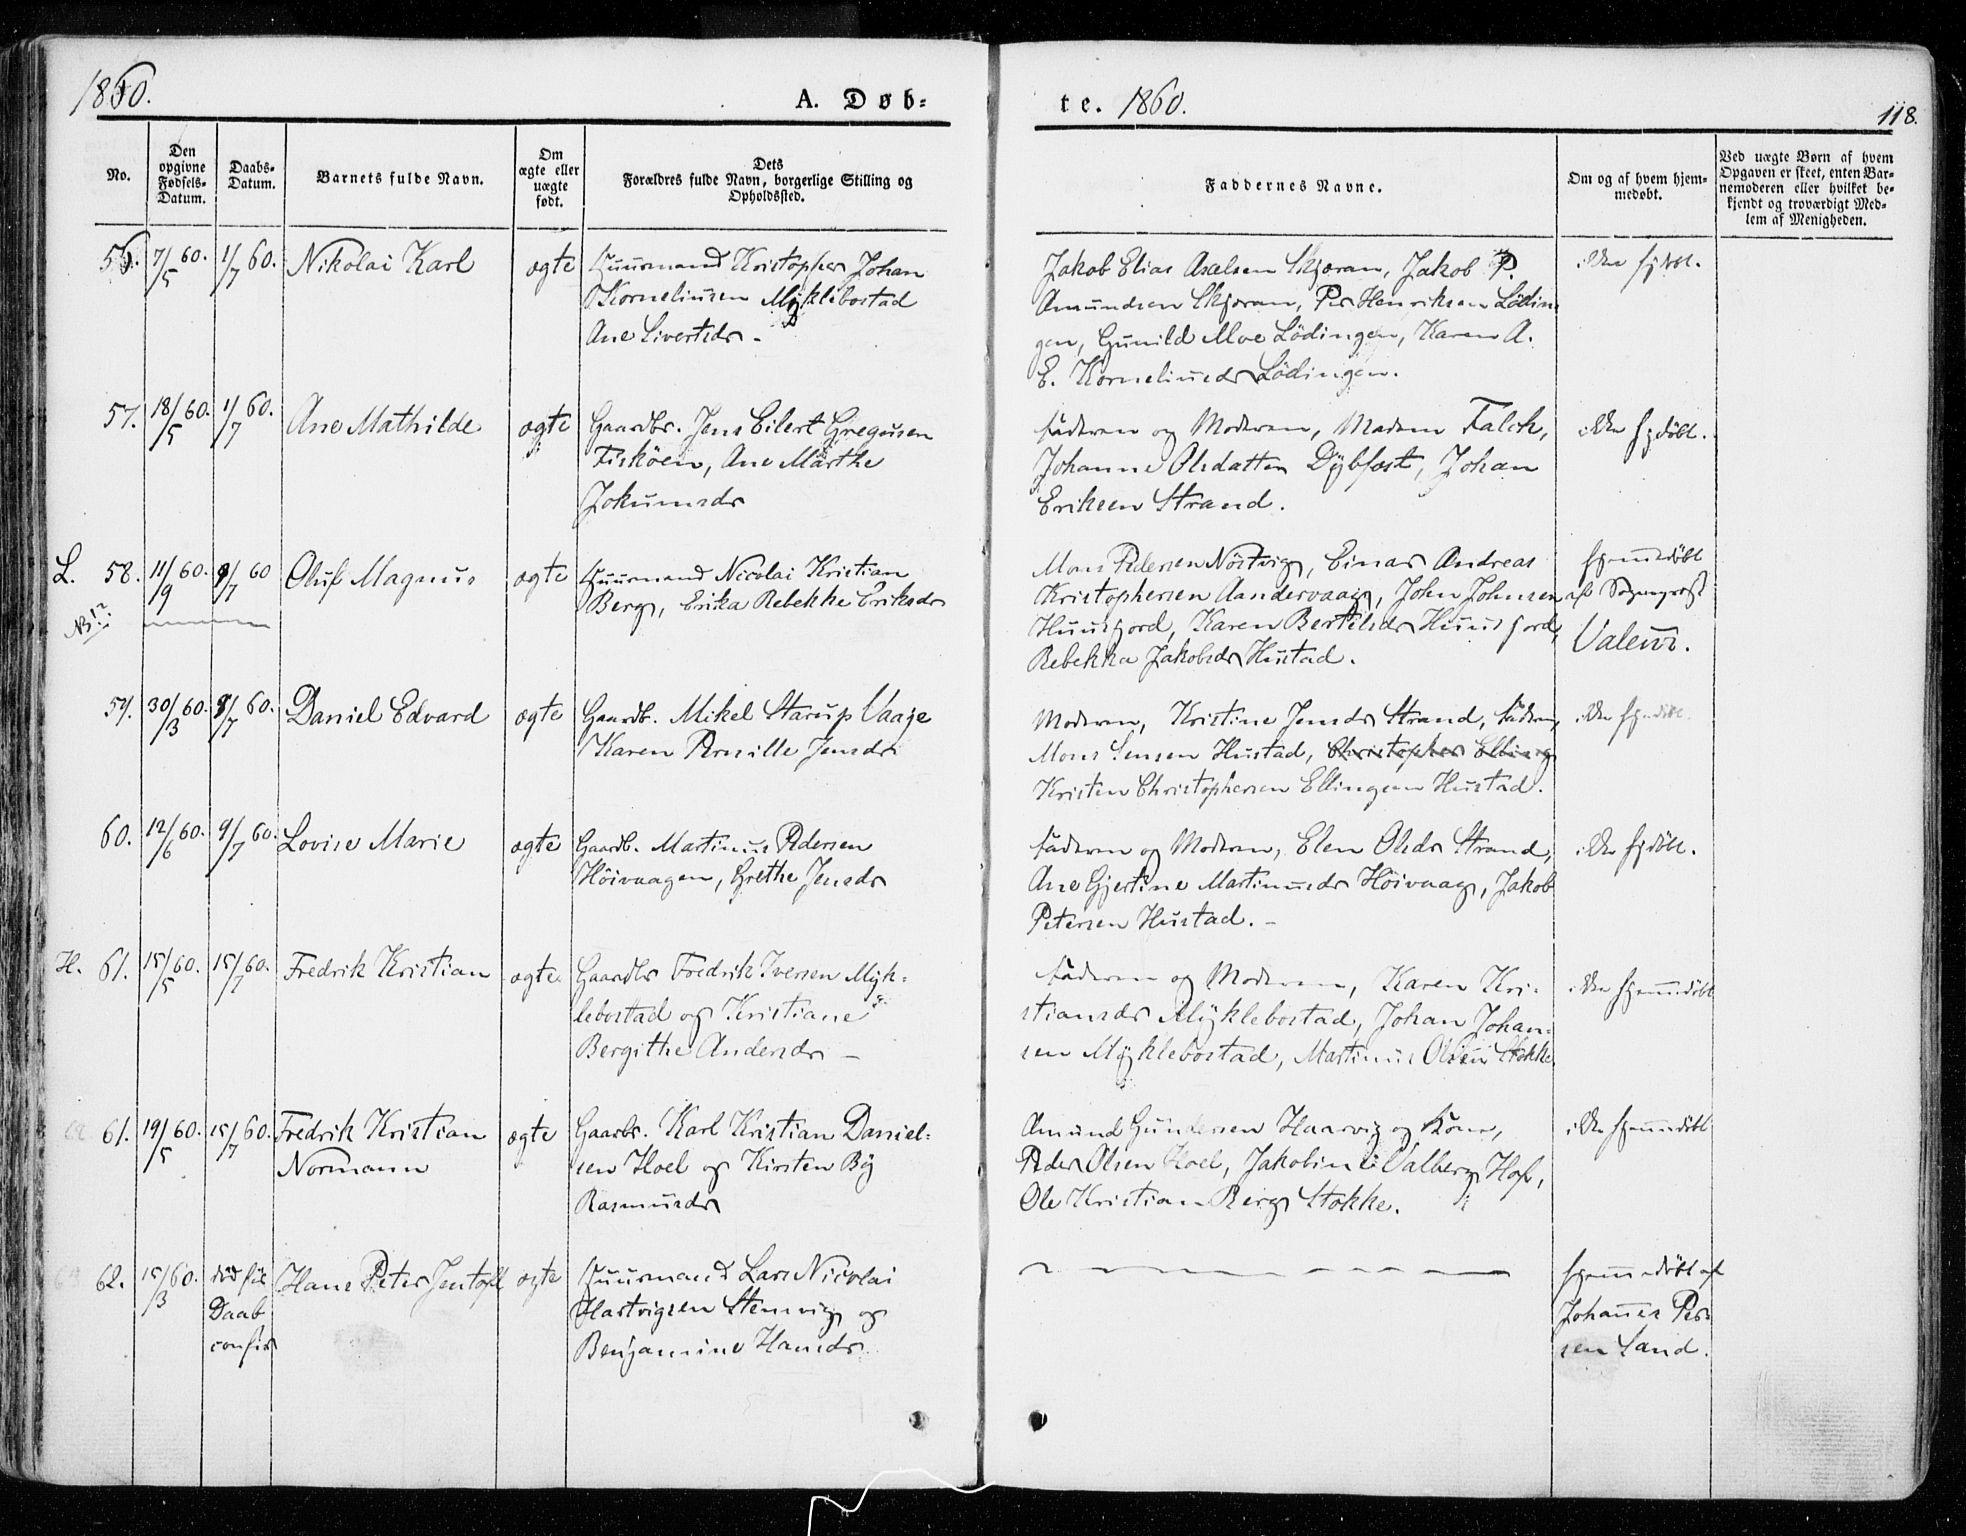 1860.
A. Døb-
te. 1860.
118.
No.
Den
opgivne
Fødsels-
Datum.
Daabs-
Datum.
Barnets fulde Navn.
Om
ægte eller
uægte
født.
Dets
Forældres fulde Navn, borgerlige Stilling og
Opholdssted.
Faddernes Navne.
Om og af hvem hjem-
medøbt.
Ved uægte Børn af hvem
Opgaven er skeet, enten Bar-
nemoderen eller hvilket be-
kjendt og troværdigt Med-
lem af Menigheden.
56. 7/5 60. 1/7 60. Nikolai Karl ægte Huusmand Kristopher Johan
Korneliusen Myklebostad
Ane Sivertsdr -
Jakob Elias Axelsen Skjæran, Jakob P.
Amundsen Skjæran, Per Henriksen Lödin-
gen, Gunild Moe Lödingen, Karen A.
E. Korneliusdr Lödingen.
ikke hjdöbt.
57. 18/5 60. 1/7 60. Ane Mathilde ægte Gaardbr. Jens Eilert Gregusen
Fisköen, Ane Marthe
Jokumsdr
Faderen og Moderen, Madam Falch,
Johanne Olsdatter Dybfæst, Johan
Eriksen Strand.
ikke hjdöbt.
L. 58. 11/9 60. /7 60 Oluf Magnus ægte Huusmand Nicolai Kristian
Berg, Erika Rebekke Eriksdr
NB!?
Mons Pedersen Nöstvig, Einar Andreas
Kristophersen Aandervaag, John Johnsen
Huusfjord, Karen Bertelsdr Huusfjord,
Rebekka Jakobsdr Hustad.
hjemmedöbt
af Sogneprest
Valeur.
59. 30/3 60. /7 60. Daniel Edvard ægte Gaardb. Mikel Starup Vaage
Karen Pernille Jensdr
Moderen, Kristine Jensdr Strand, Faderen,
Mons Jensen Hustad, Christopher Elling
Kristen Christophersen Ellingsen Hustad.
ikke hjmdöbt.
60. 12/6 60. 9/7 60. Lovise Marie ægte Gaardb. Martinus Pedersen
Höivaagen, Grethe Jensdr
Faderen og Moderen, Elen Olsdr Strand,
Ane Gjertine Martinusdr Höivaag, Jakob
Petersen Hustad. -
ikke hjdöbt.
H. 61. 15/5 60. 15/7 60. Fredrik Kristian ægte Gaardbr Fredrik Iversen Myk-
lebostad og Kristiane
Bergithe Andersdr -
Faderen og Moderen, Karen Kri-
stiansdr Myklebostad, Johan Johan-
sen Myklebostad, Martinus Olsen Stokke
ikke hjemmedöbt
61. 19/5 60. 15/7 60. Fredrik Kristian
Normann
ægte Gaarbr. Karl Kristian Daniel-
sen Hoel og Kirsten By
Rasmusdr
Amund Gundersen Haarvig og Kone,
Peder Olsen Hoel, Jakobine Valberg Hof,
Ole Kristian Berg Stokke.
ikke hjemmedöbt
62. 15/3 60. död för
Daab
confir
Hans Peter Jentoft ægte Huusmand Lars Nicolai
Hartvigsen Stensvig og
Benjamine Hansdr
hjemmedöbt af
Johannes Peer-
sen Sand.